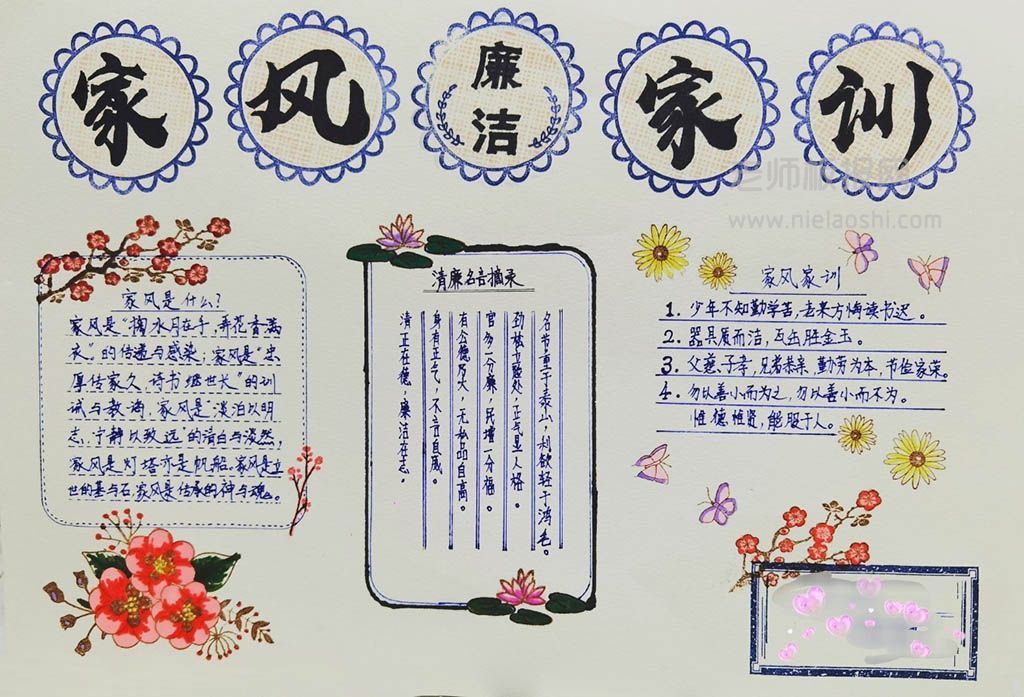 家风
廉洁
家训
老师板报网
www.nielaoshi.com
家风是什么?
家风是“掬水月在手,弄花香满
衣”的传递与感染;家风是“忠
厚传家久,诗书继世长”的训
诫与教诲,家风是“淡泊以明
志,宁静以致远”的清白与淡然,
家风是灯塔亦是帆船。家风是立
世的基与石,家风是传承的神与魂。
清廉名言摘录
名节重于泰山,利欲轻于鸿毛。
劲松立险处,正气显人格。
官多一分廉,民增一分福。
有公德乃大,无私品自高。
身有正气,不言自威。
清正在德,廉洁在志。
家风家训
1. 少年不知勤学苦,老来方悔读书迟。
2. 器具质而洁,瓦缶胜金玉。
3. 父慈、子孝,兄宽弟恭亲,勤劳为本,节俭家荣。
4. 勿以善小而为之,勿以善小而不为。
惟德惟贤,能服于人。